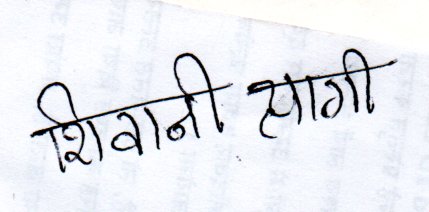 शिवानी त्यागी